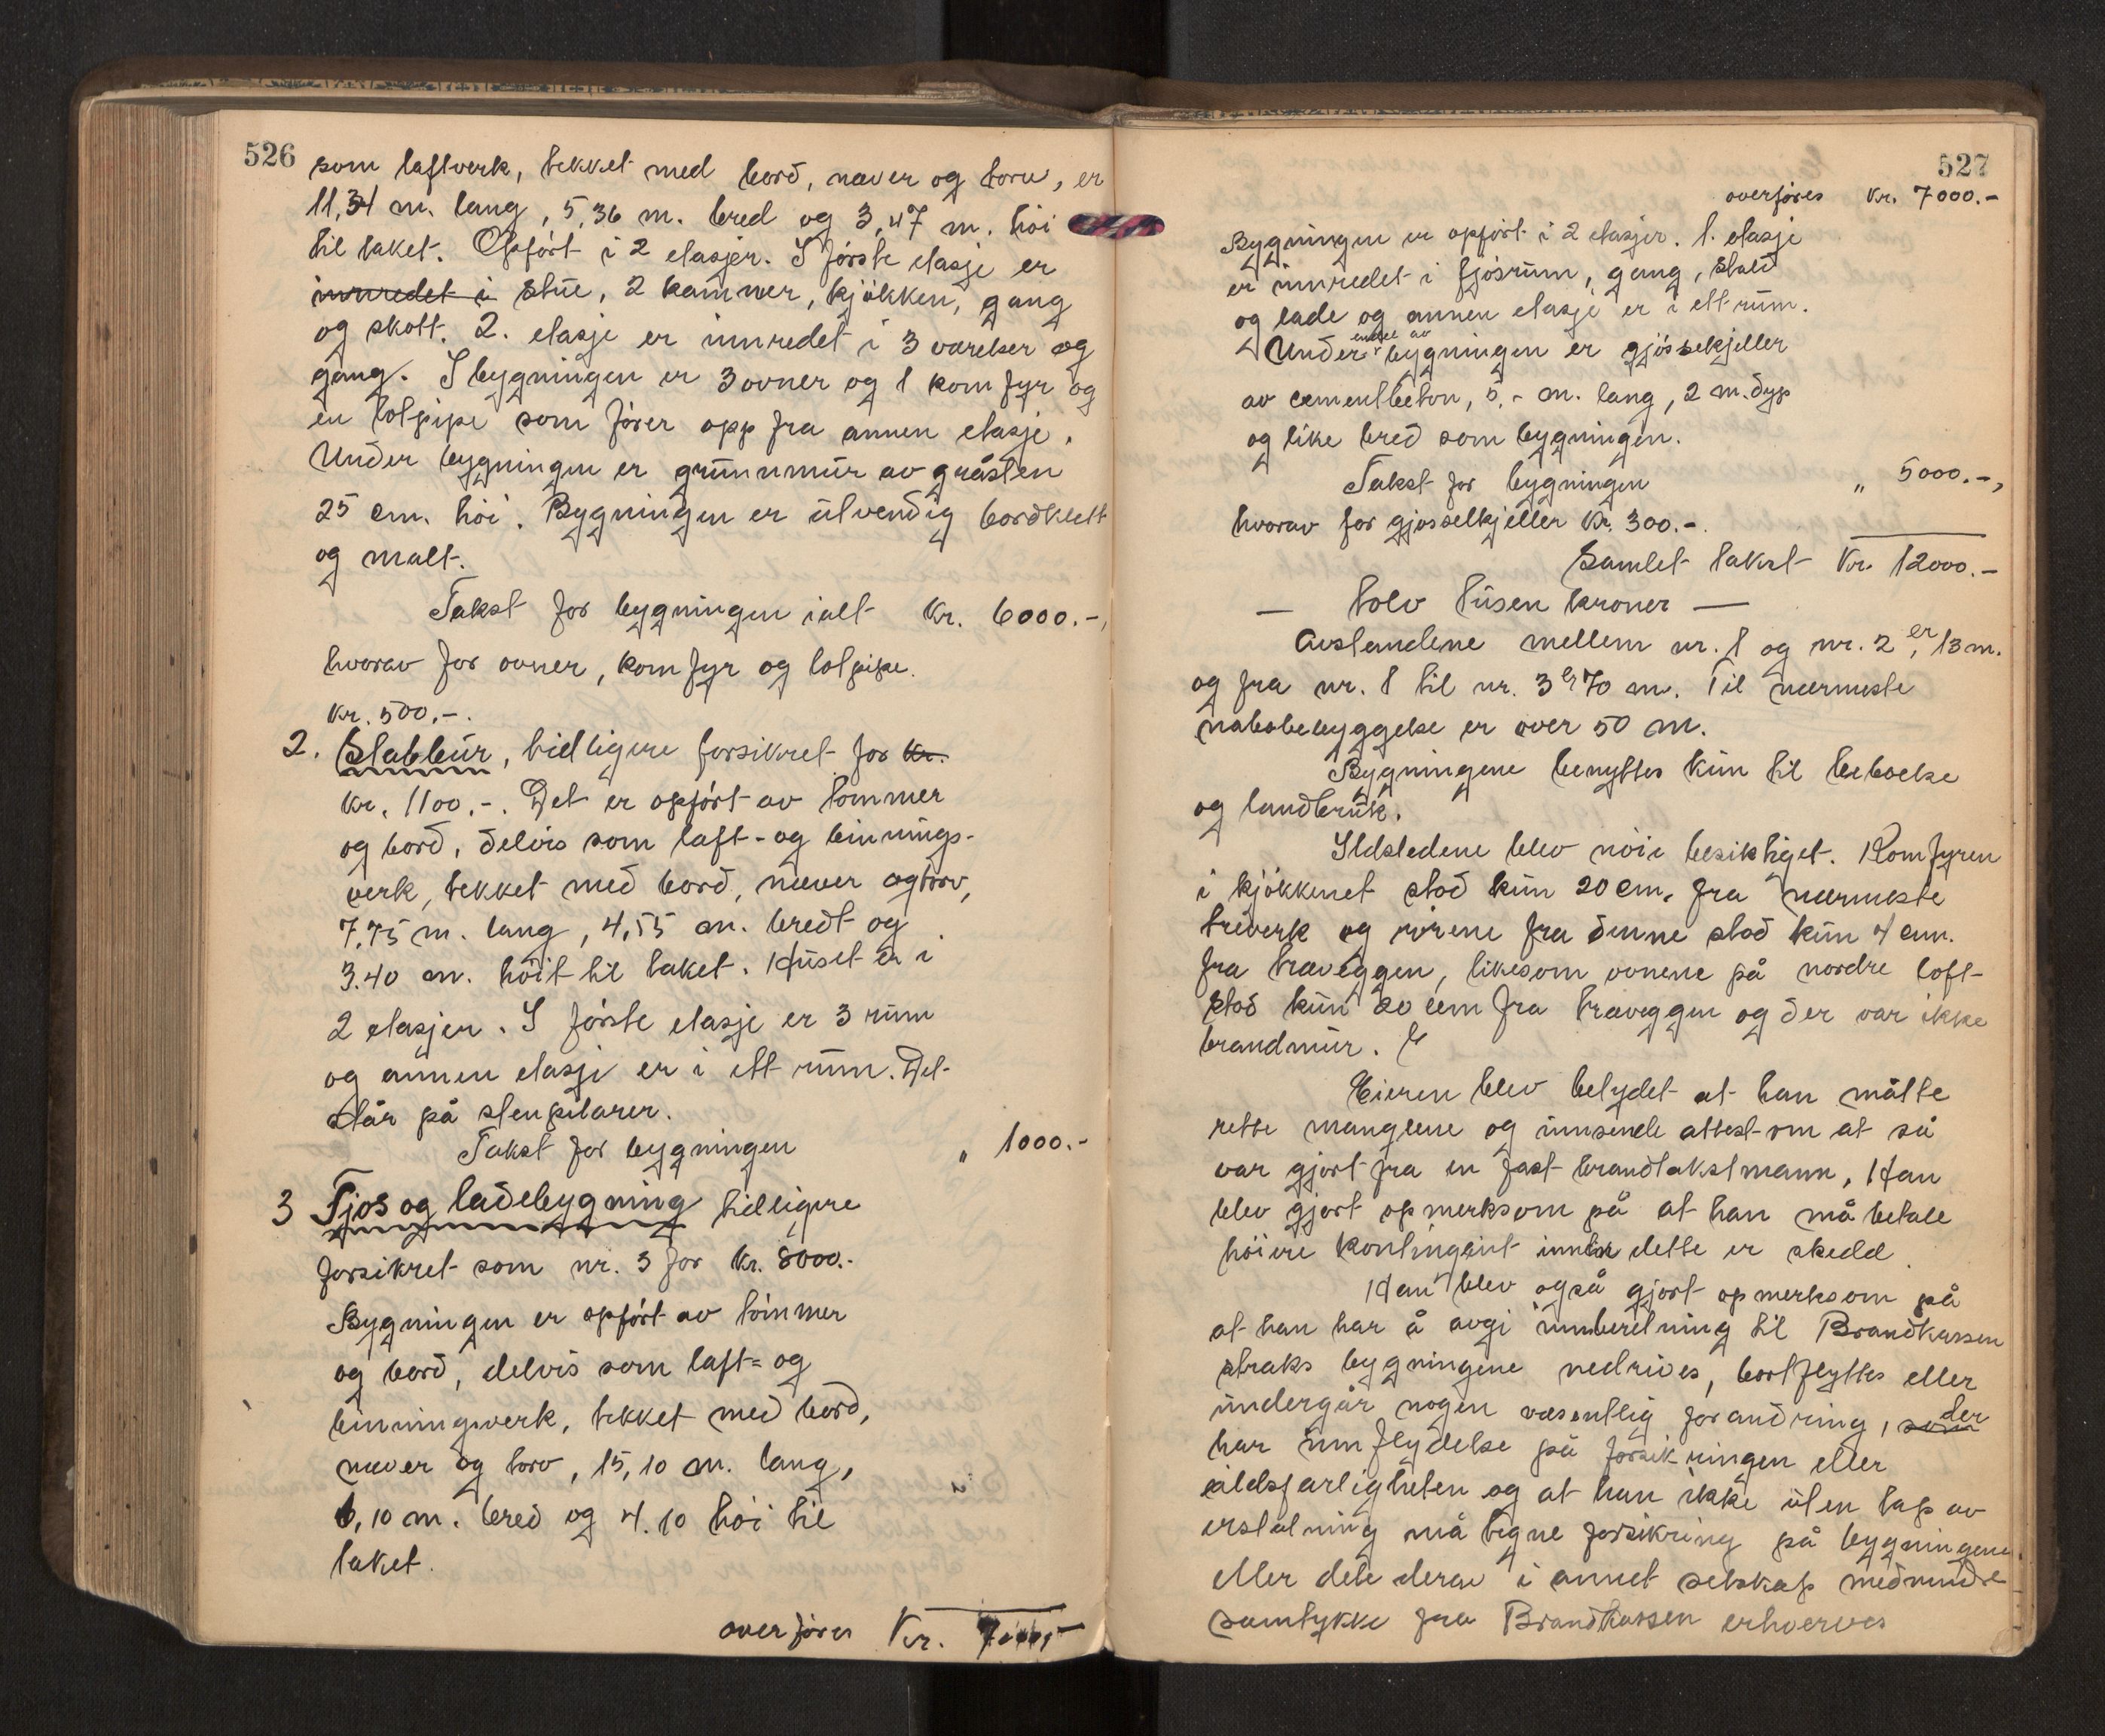 526
som laftverk, tekket med bord, never og torv, er
11,34 m. lang, 5,36 m. bred og 3,47 m. höi
til taket. Opfört i 2 etasjer. I förste etasje er
innredet i stue, 2 kammer, kjökken, gang
og skott. 2. etasje er innredet i 3 værelser og
gang. I bygningen er 3 ovner og 1 komfyr og
en tolpipe som förer opp fra annen etasje.
Under bygningen er grunnmur av gråsten
25 cm. höi. Bygningen er utvendig bordklett
og malt.
Takst for bygningen ialt kr. 6000.-,
hvorav for ovner, komfyr og tolpipe.
kr. 500.-.
2. Stabbur, tidligere forsikret for kr.
kr. 1100.-. Det er opfört av tömmer
og bord, delvis som laft- og binnings-
verk, tekket med bord, never og torv,
7,75 m. lang, 4,55 m. bredt og
3.40 m. höit til taket. Huset er i
2 etasjer. I förste etasje er 3 rum
og annen etasje er i ett rum. Det
står på stenpilarer.
Takst for bygningen „ 1000.-
3 Fjos og ladebygning tidligere
forsikret som nr. 3 for kr. 8000.-
Bygningen er opfört av tömmer
og bord, delvis som laft= og
binningsverk, tekket med bord,
never og torv, 15,10 m. lang,
6,10 m. bred og 4.10 höi til
taket.
overföres Kr. 7000,-
527
overföres Kr. 7000.-
Bygningen er opfört i 2 etasjer. 1. etasje
er innredet i fjösrum, gang, stald
og lade og annen etasje er i ett rum.
endel av
Under bygningen er gjösselkjeller
av cementbeton, 5,- m. lang, 2 m. dyp
og like bred som bygningen.
Takst for bygningen „ 5000.-,
hvorav for gjosselkjeller Kr. 300.-.
Samlet takst Kr. 12000.-
— tolv tusen kroner —
Avstandene mellem nr. 1 og nr. 2 er, 13 m.
og fra nr. 1 til nr. 3 er 70 m. Til nærmeste
nabobebyggelse er over 50 m.
Bygningene benyttes kun til beboelse
og landbruk.
Ildstedene blev nöie besiktiget. Komfyren
i kjökkenet stod kun 20 cm. fra nærmeste
treverk og rörene fra denne stod kun 4 cm.
fra træveggen, likesom ovnene på nordre loft
stod kun 20 cm fra træveggen og der var ikke
brandmur. E
Eieren blev betydet at han måtte
rette manglene og innsende attest om at så
var gjort fra en fast brandtakstmann, Han
blev gjort opmerksom på at han må betale
höiere kontingent inntil dette er skedd.
Han blev også gjort opmerksom på
at han har å avgi innberetning til Brandkassen
straks bygningene nedrives, bortflyttes eller
undergår nogen væsentlig forandring, som der
har innflydelse på forsikringen eller
ildsfarligheten og at han ikke uten tap av
erstatning må tegne forsikring på bygningene
eller dele derav i annet selskap medmindre
samtykke fra Brandkassen erhverves